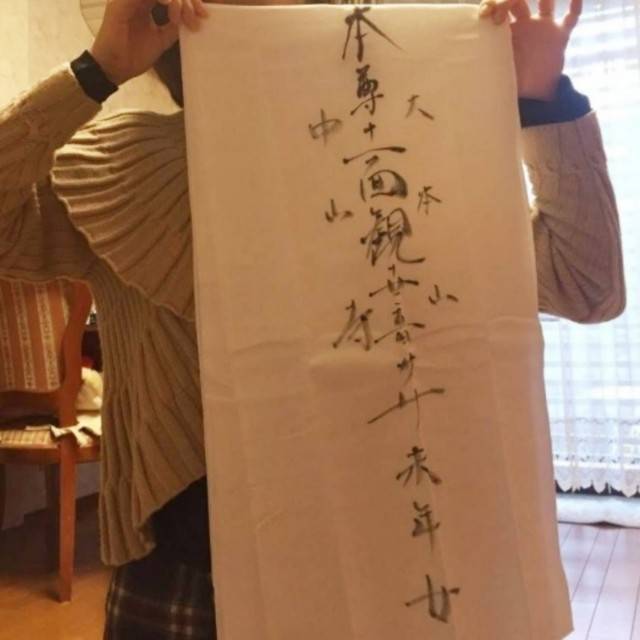 大本山
本尊十一面観世音
未年女
中山寺